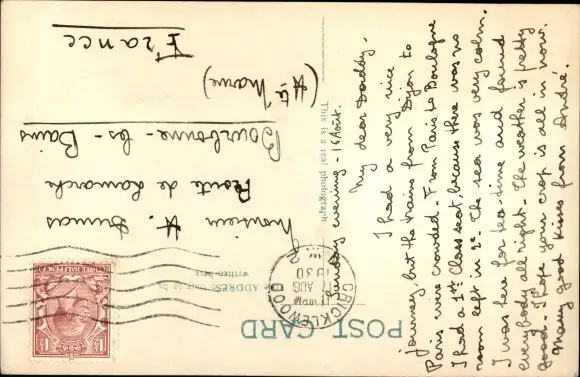 POST CARD
This is a real photograph
ADDRESS
written here
CRICKLEWOOD
AUG
1930
THREE HALF PENCE
Monsieur H. Dumas
Route de Lamarche
Bourbonne-les-Bains
(Hte Marne)
France
Sunday evening - 16 Août.
My dear Daddy.
I had a very nice
journey, but the trains from Dijon to
Paris were crowded. From Paris to Boulogne
I had a 1st Class seat, because there was no
room left in 2e. The sea was very calm.
I was here for tea-time and found
everybody all right. The weather is pretty
good. I hope your crop is all in now.
Many good kisses from André.